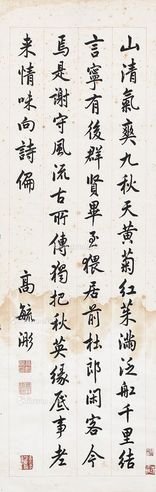 山清氣爽九秋天黃菊紅茱滿泛舡千里結
言寧有後群賢畢至猥居前杜郎閒客今
焉是謝守風流古所傳獨把秋英緣底事老
来情味向詩偏
高毓浵